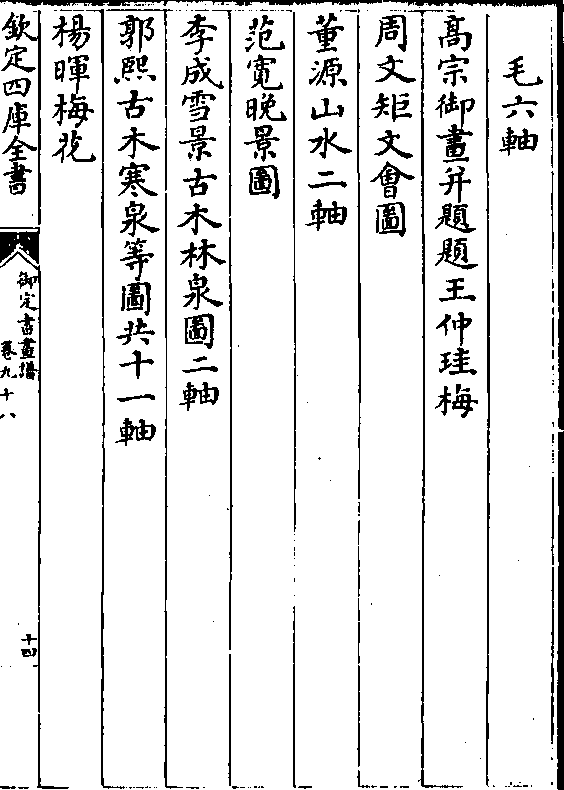 毛六軸
髙宗御畫并題題王仲珪梅
周文矩文㑹圖
董源山水二軸
范寛晩景圖
李成雪景古木林泉圖二軸
郭熙古木寒泉等圖共十一軸
楊暉梅花
欽定四庫全書
御定書畫譜
卷九十八
十四